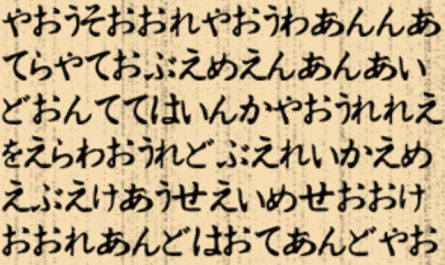 やおうそおおれやおうわあんんあ
てらやておぶえめえんあんあい
どおんててはいんかやおうれれえ
をえらわおうれどぶえれいかえめ
えぶえけあうせえいめせおおけ
おおれあんどはおてあんどやお